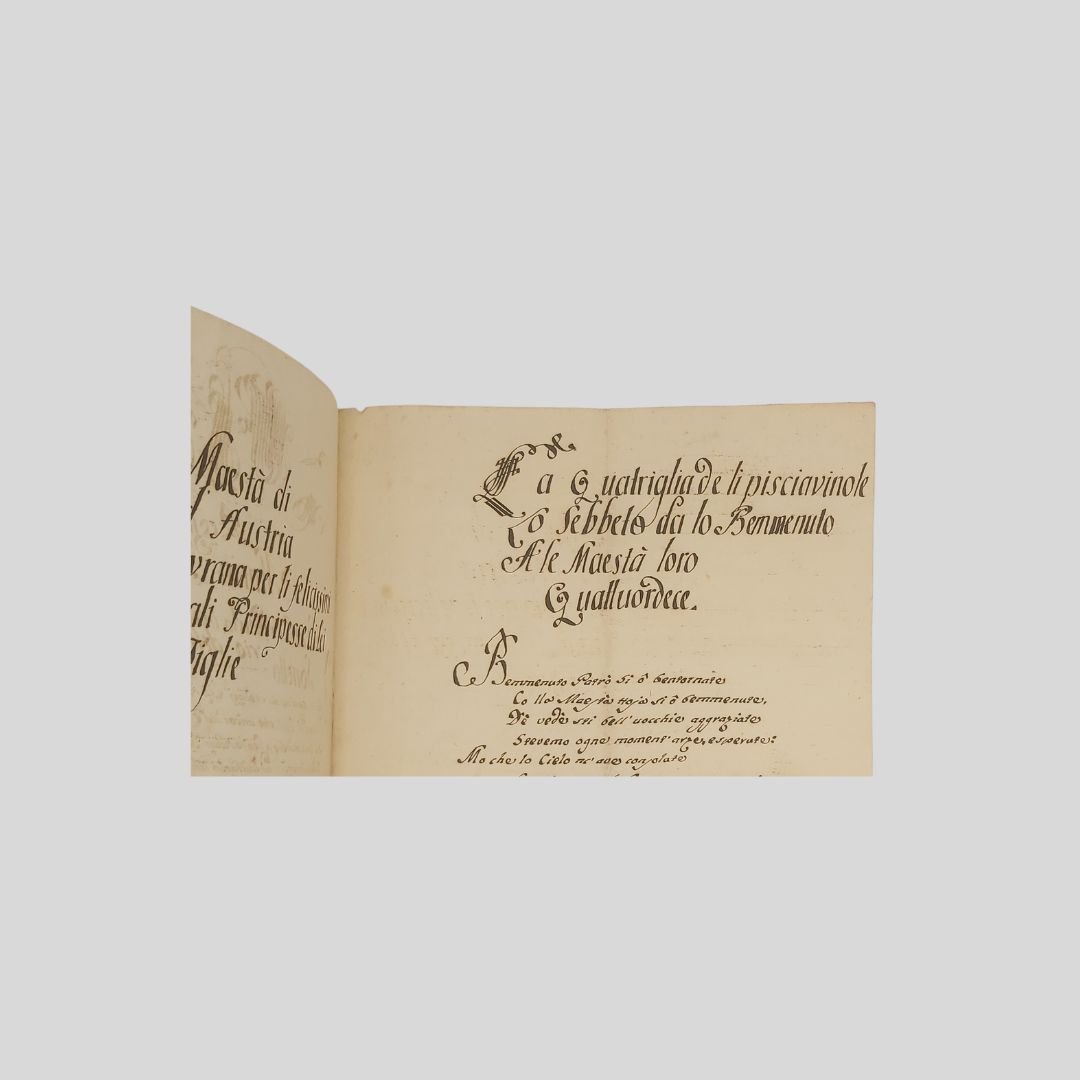 Maestà di
Austria
vrana per li felicissimi
ali Principesse di Lei
Figlie
La Quatriglia de li pisciavinole
Lo Sebbeto da lo Bemmenuto
A le Maestà loro
Quattuordece.
Bemmenuto Patrò si ò bentornate
Co lla Maestà toja si ò bemmenute,
Dè vedè sti bell'uocchie aggraziate
Stevemo ogne moment'arze, e sperute:
Mo che lo Cielo nc'ave conzolate